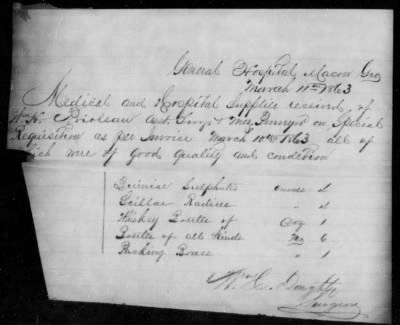 General Hospital, Macon Geo
March 11th 1863
Medical and Hospital Supplies received, of
W. H. Prioleau Asst Surg & Med Purveyor on Special
Requisition as per Invoice March 10th 1863 all of
which were of Good Quality and condition
Quiniae Sulphates ounces 2
Scillae Radices " 2
Whiskey Bottles of Doz 1
Bottles of all kinds No 6
Packing Boxes " 1
W. H. Doughty
Surgeon